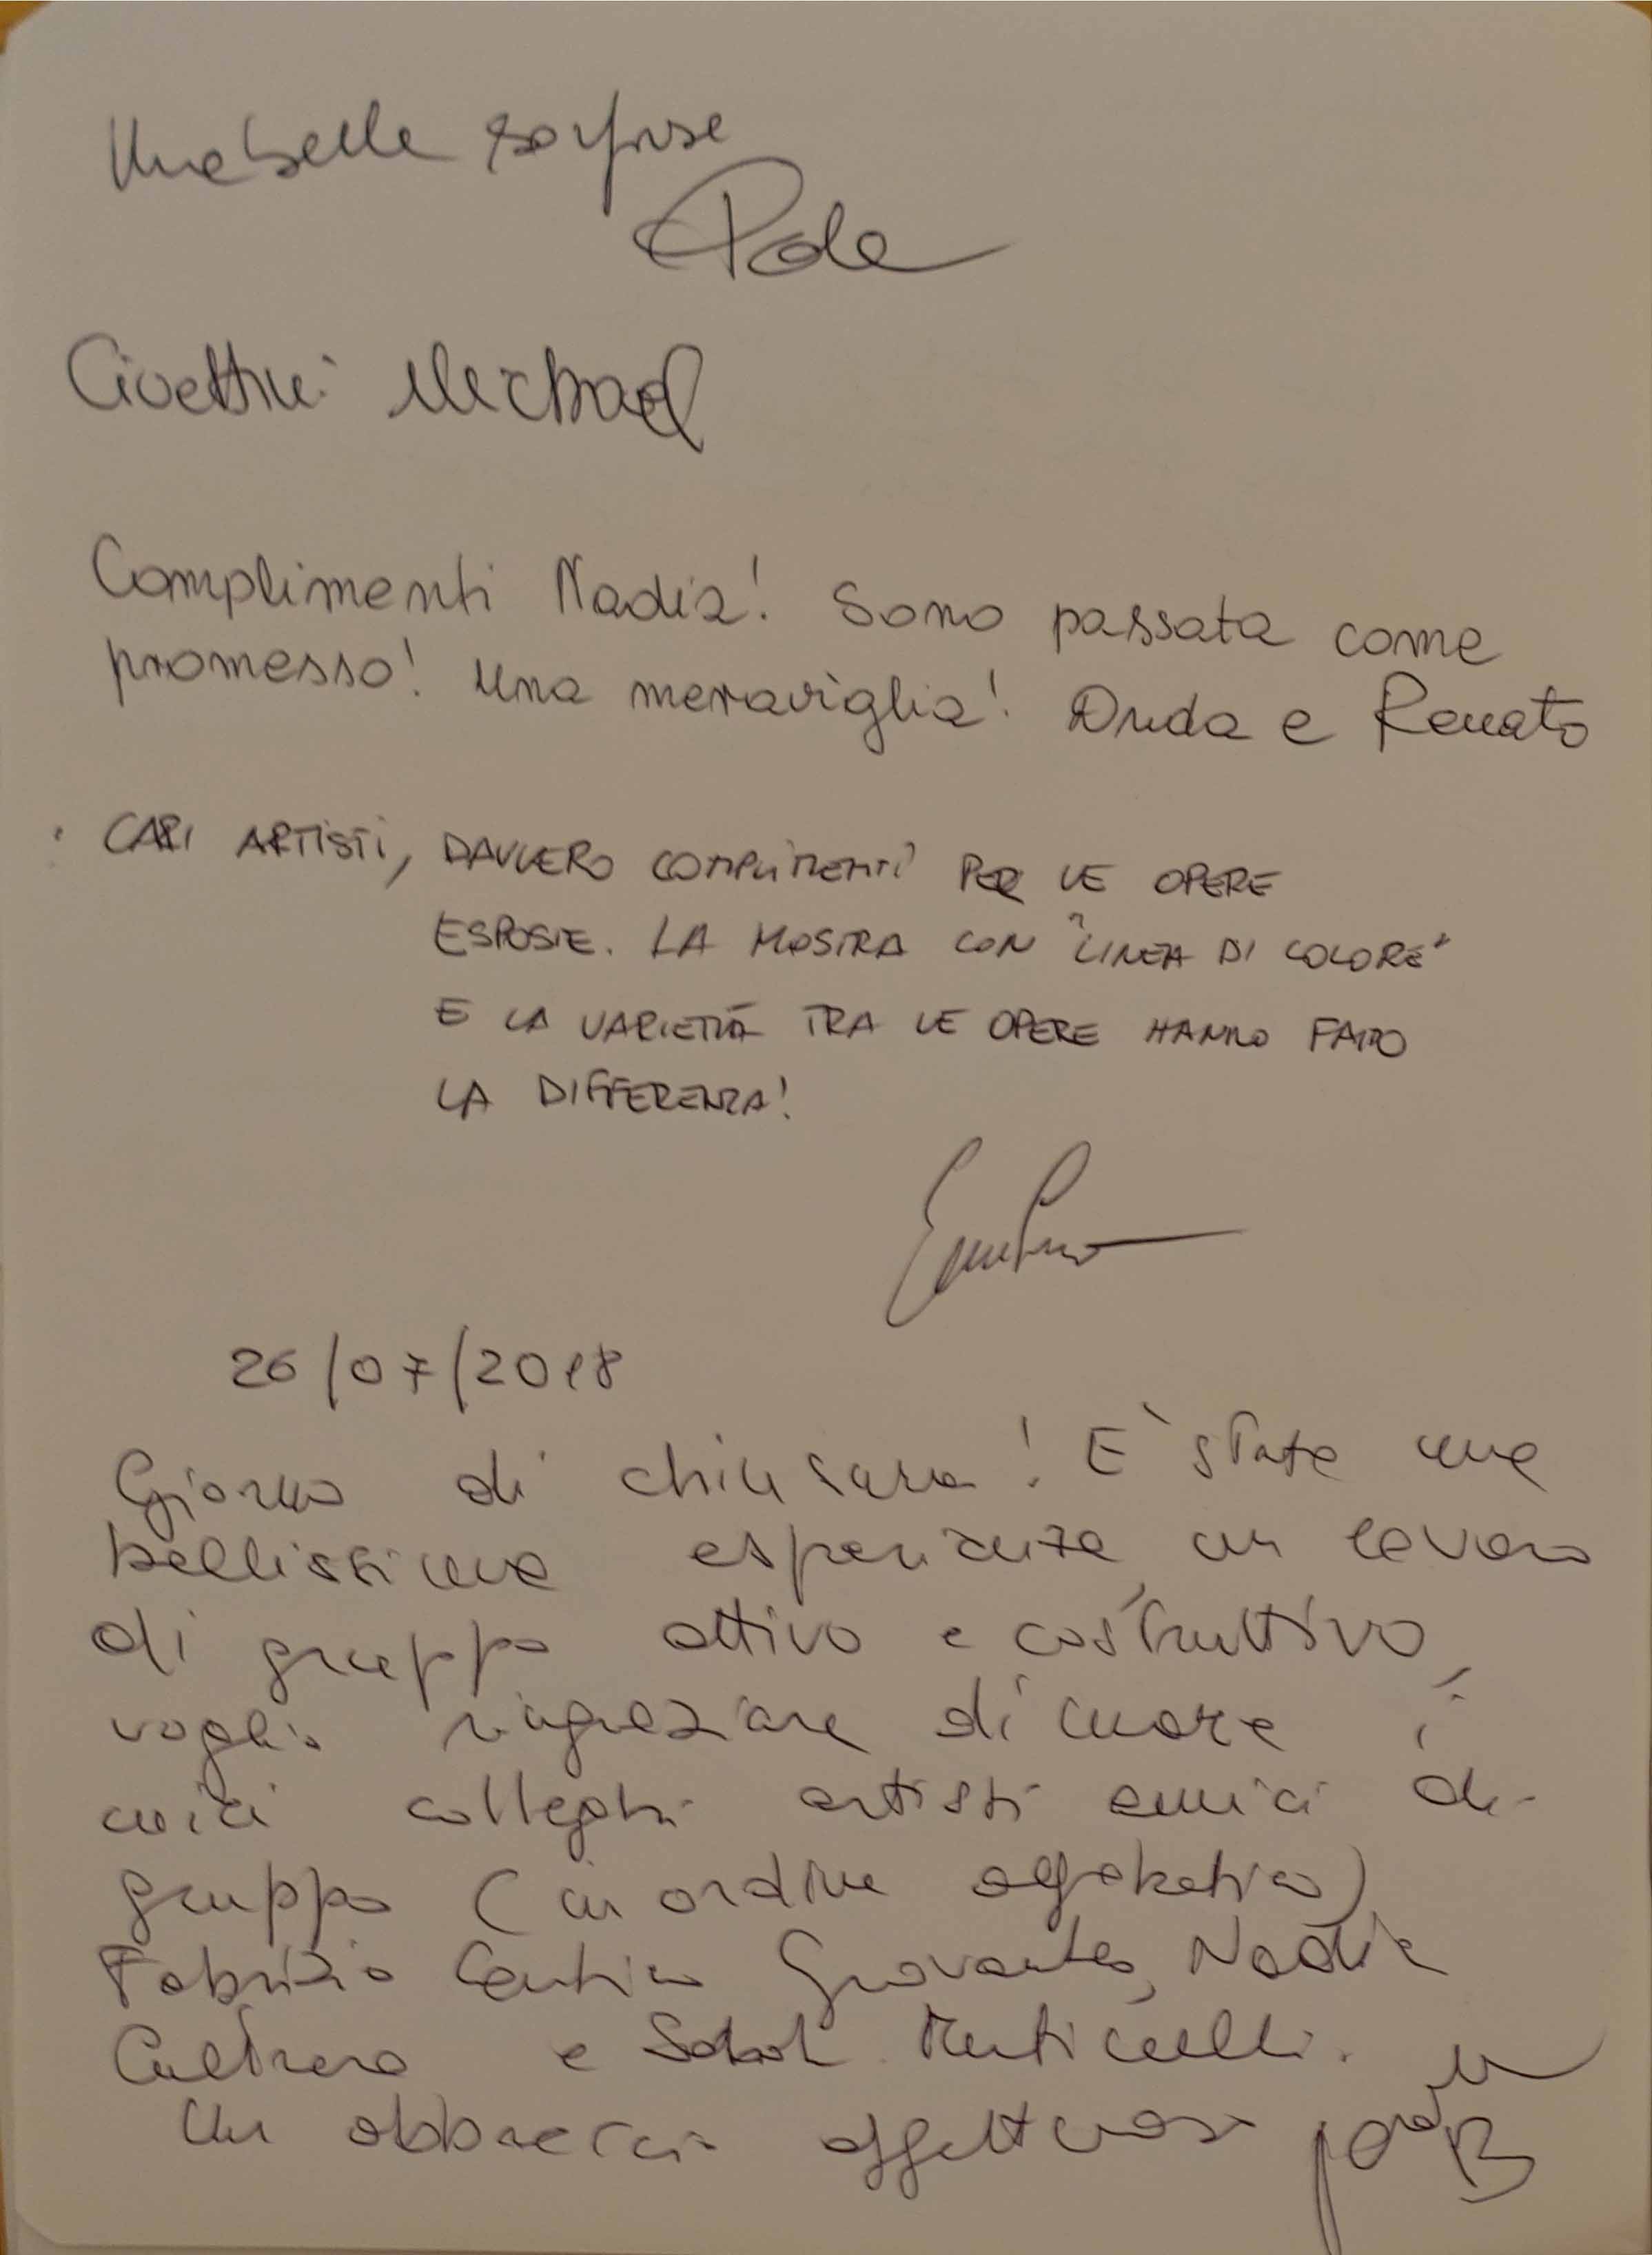 Una bella sorpresa
Civettini Michael
Complimenti Nadia! Sono passata come
promesso! Una meraviglia! Duda e Renato
CARI ARTISTI, DAVVERO COMPLIMENTI PER LE OPERE
ESPOSTE. LA MOSTRA CON "LINEA DI COLORE"
E LA VARIETÀ TRA LE OPERE HANNO FATTO
LA DIFFERENZA!
26/07/2018
Giorno di chiusura! E` stata una
bellissima esperienza, un lavoro
di gruppo attivo e costruttivo,
voglio ringraziare di cuore i
miei colleghi artisti amici di
gruppo (in ordine alfabetico)
Fabrizio Nadia
Cultrera e
Un abbraccio affettuoso